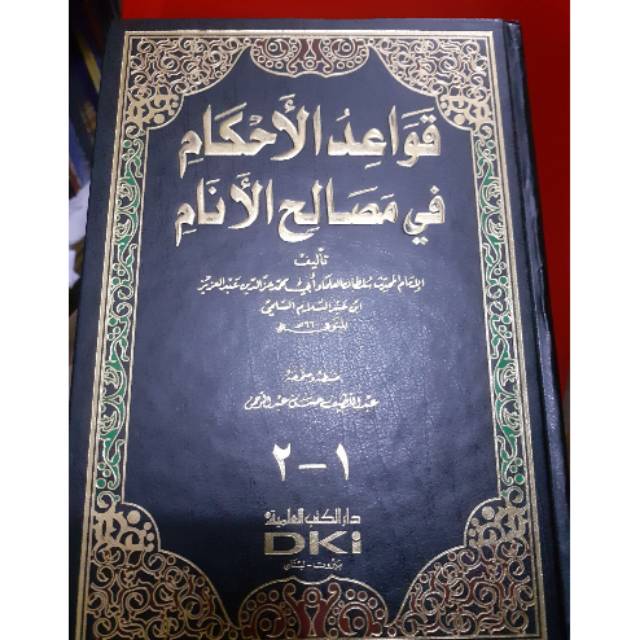 قَوَاعِدُ الأَحْكَامِ
فِي مَصَالِحِ الأَنَامِ
تأليف
الإمام المحدث سلطان العلماء أبي محمد عز الدين عبد العزيز
ابن عبد السلام السلمي
المتوفى ٦٦٠ هـ
ضبطه وصححه
عبد اللطيف حسن عبد الرحمن
١ - ٢
دار الكتب العلمية
DKi
بيروت - لبنان